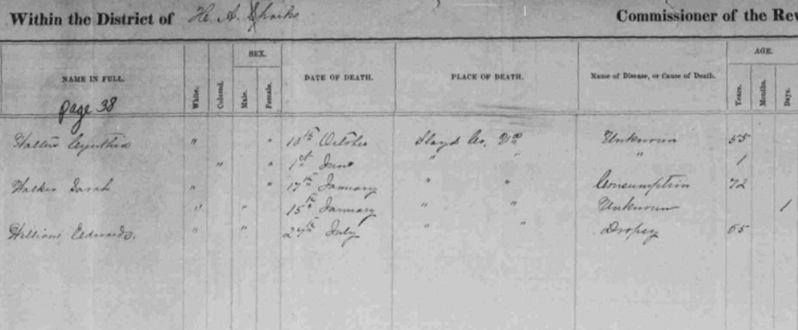 Within the District of H. A. Sparks Commissioner of the Rev
SEX. AGE.
NAME IN FULL. White. Colored. Male. Female. DATE OF DEATH. PLACE OF DEATH. Name of Disease, or Cause of Death. Years. Months. Days.
page 38
Cynthia " " 10th October Floyd Co. Va Unknown 55
" " 1st June " " " 1
Walker Sarah " " 17th January " " Consumption 72
" " 15th January " " Unknown 1
Edwards. " " July " " Dropsy 65